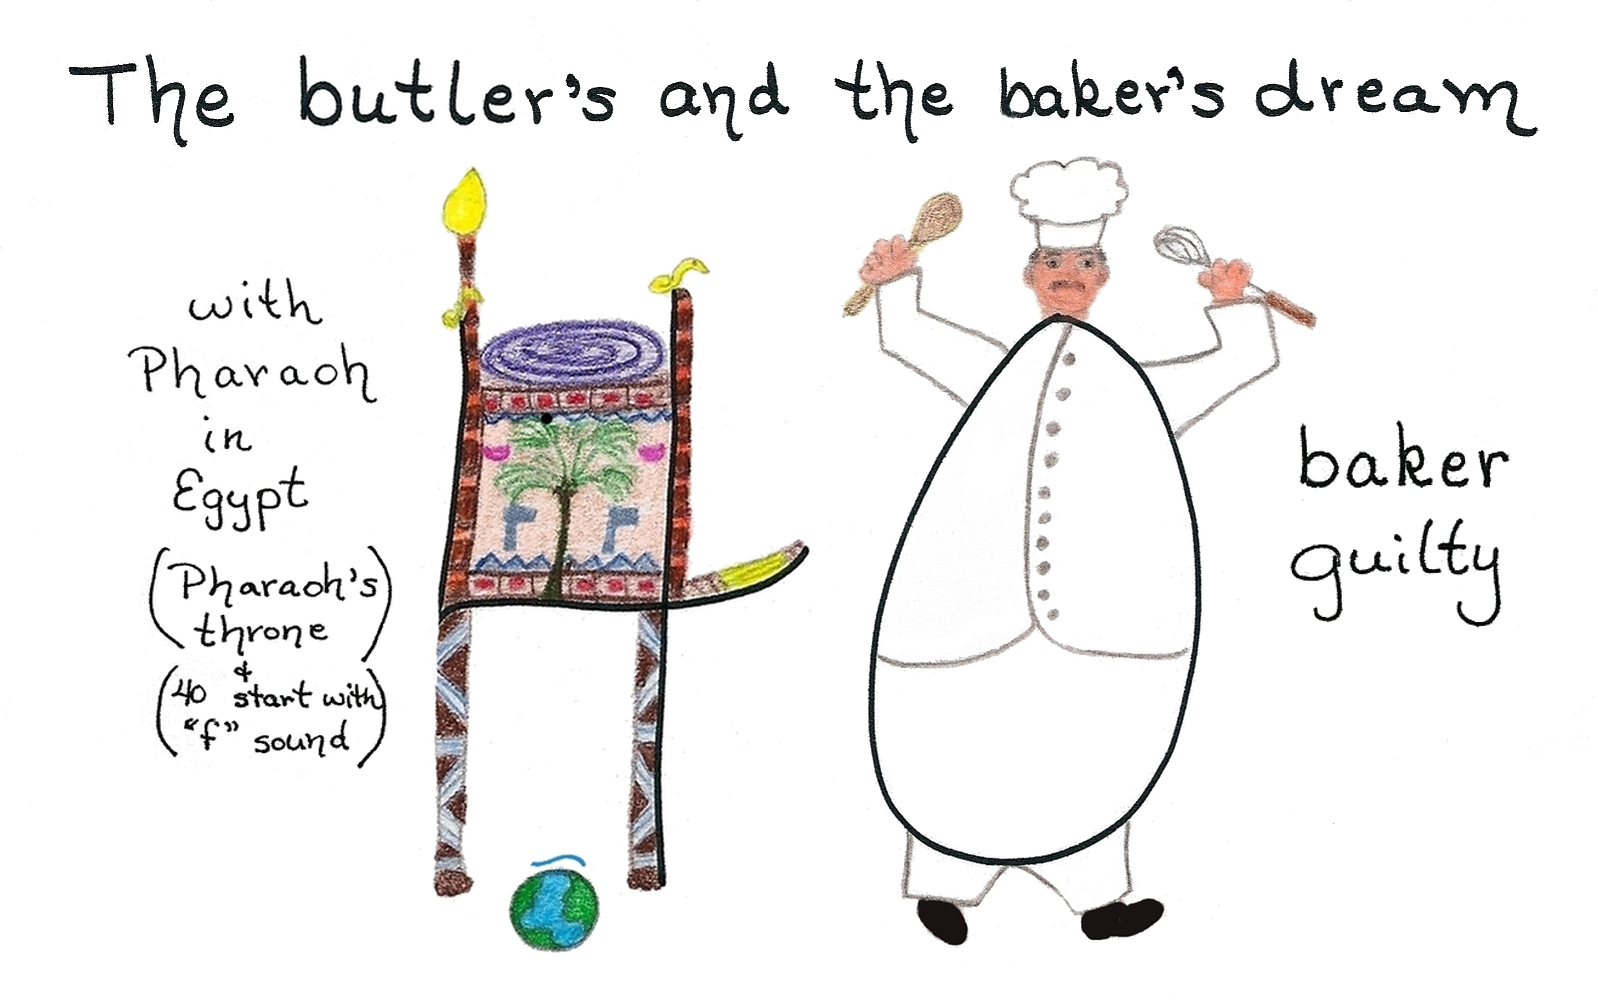 The butler's and the baker's dream
with
Pharaoh
in
Egypt
(Pharaoh's
throne)
&
(40 start with
"f" sound)
baker
guilty